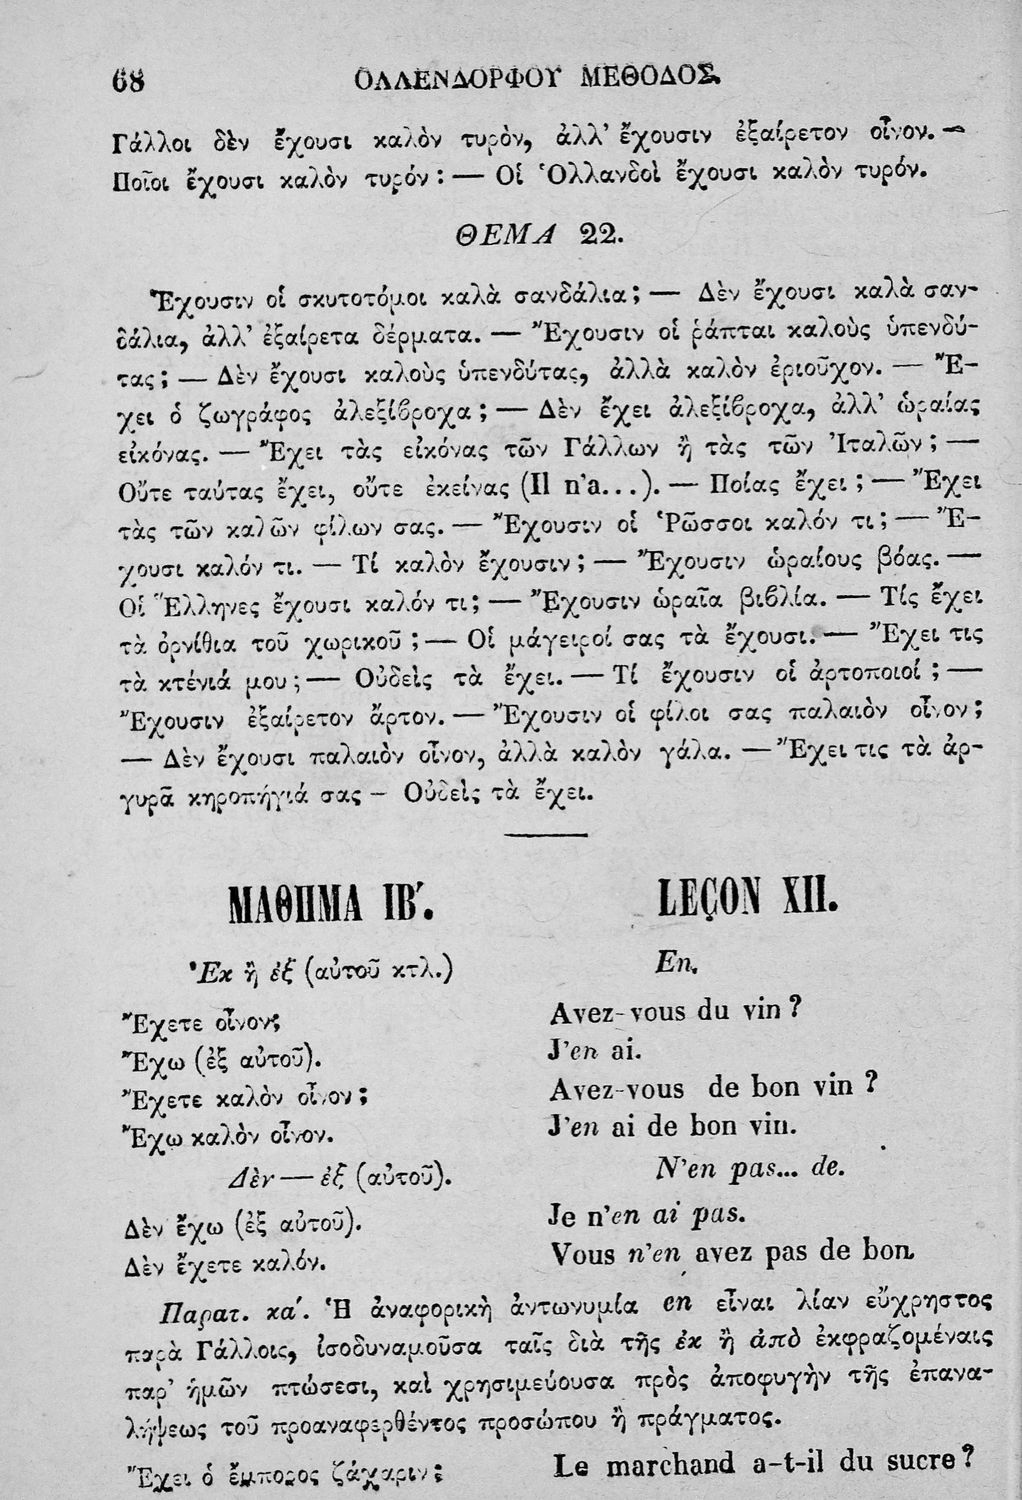 68 ΟΛΛΕΝΔΟΡΦΟΥ ΜΕΘΟΔΟΣ
Γάλλοι δὲν ἔχουσι καλὸν τυρὸν, ἀλλ’ ἔχουσιν ἐξαίρετον οἶνον. —
Ποῖοι ἔχουσι καλὸν τυρόν : — Οἱ Ὁλλανδοὶ ἔχουσι καλὸν τυρόν.
ΘΕΜΑ 22.
Ἔχουσιν οἱ σκυτοτόμοι καλὰ σανδάλια ; — Δὲν ἔχουσι καλὰ σαν-
δάλια, ἀλλ’ ἐξαίρετα δέρματα. — Ἔχουσιν οἱ ῥάπται καλοὺς ὑπενδύ-
τας ; — Δὲν ἔχουσι καλοὺς ὑπενδύτας, ἀλλὰ καλὸν ἐριοῦχον. — Ἔ-
χει ὁ ζωγράφος ἀλεξίβροχα ; — Δὲν ἔχει ἀλεξίβροχα, ἀλλ’ ὡραίας
εἰκόνας. — Ἔχει τὰς εἰκόνας τῶν Γάλλων ἢ τὰς τῶν Ἰταλῶν ; —
Οὔτε ταύτας ἔχει, οὔτε ἐκείνας (Il n’a...). — Ποίας ἔχει ; — Ἔχει
τὰς τῶν καλῶν φίλων σας. — Ἔχουσιν οἱ Ῥῶσσοι καλόν τι ; — Ἔ-
χουσι καλόν τι. — Τί καλὸν ἔχουσιν ; — Ἔχουσιν ὡραίους βόας. —
Οἱ Ἕλληνες ἔχουσι καλόν τι ; — Ἔχουσιν ὡραῖα βιβλία. — Τίς ἔχει
τὰ ὀρνίθια τοῦ χωρικοῦ ; — Οἱ μάγειροί σας τὰ ἔχουσι. — Ἔχει τις
τὰ κτένιά μου ; — Οὐδεὶς τὰ ἔχει. — Τί ἔχουσιν οἱ ἀρτοποιοί ; —
Ἔχουσιν ἐξαίρετον ἄρτον. — Ἔχουσιν οἱ φίλοι σας παλαιὸν οἶνον ;
— Δὲν ἔχουσι παλαιὸν οἶνον, ἀλλὰ καλὸν γάλα. — Ἔχει τις τὰ ἀρ-
γυρᾶ κηροπήγιά σας – Οὐδεὶς τὰ ἔχει.
ΜΑΘΗΜΑ ΙΒ΄. LEÇON XII.
Ἐκ ἢ ἐξ (αὐτοῦ κτλ.) En.
Ἔχετε οἶνον; Avez-vous du vin ?
Ἔχω (ἐξ αὐτοῦ). J’en ai.
Ἔχετε καλὸν οἶνον ; Avez-vous de bon vin ?
Ἔχω καλὸν οἶνον. J’en ai de bon vin.
Δὲν — ἐξ (αὐτοῦ). N’en pas... de.
Δὲν ἔχω (ἐξ αὐτοῦ). Je n’en ai pas.
Δὲν ἔχετε καλόν. Vous n’en avez pas de bon.
Παρατ. κα΄. Ἡ ἀναφορικὴ ἀντωνυμία en εἶναι λίαν εὔχρηστος
παρὰ Γάλλοις, ἰσοδυναμοῦσα ταῖς διὰ τῆς ἐκ ἢ ἀπὸ ἐκφραζομέναις
παρ’ ἡμῶν πτώσεσι, καὶ χρησιμεύουσα πρὸς ἀποφυγὴν τῆς ἐπανα-
λήψεως τοῦ προαναφερθέντος προσώπου ἢ πράγματος.
Ἔχει ὁ ἔμπορος ζάχαριν ; Le marchand a-t-il du sucre ?